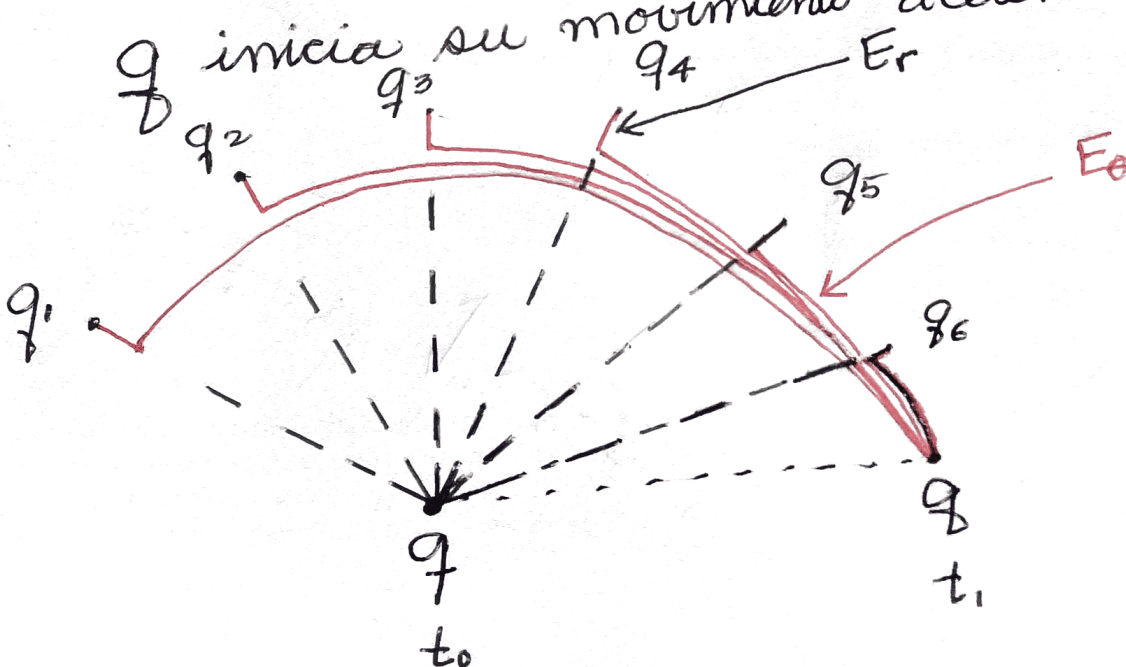 q inicia su movimiento
q3
q4
Er
q2
Eθ
q5
q1
q6
q
t0
q
t1